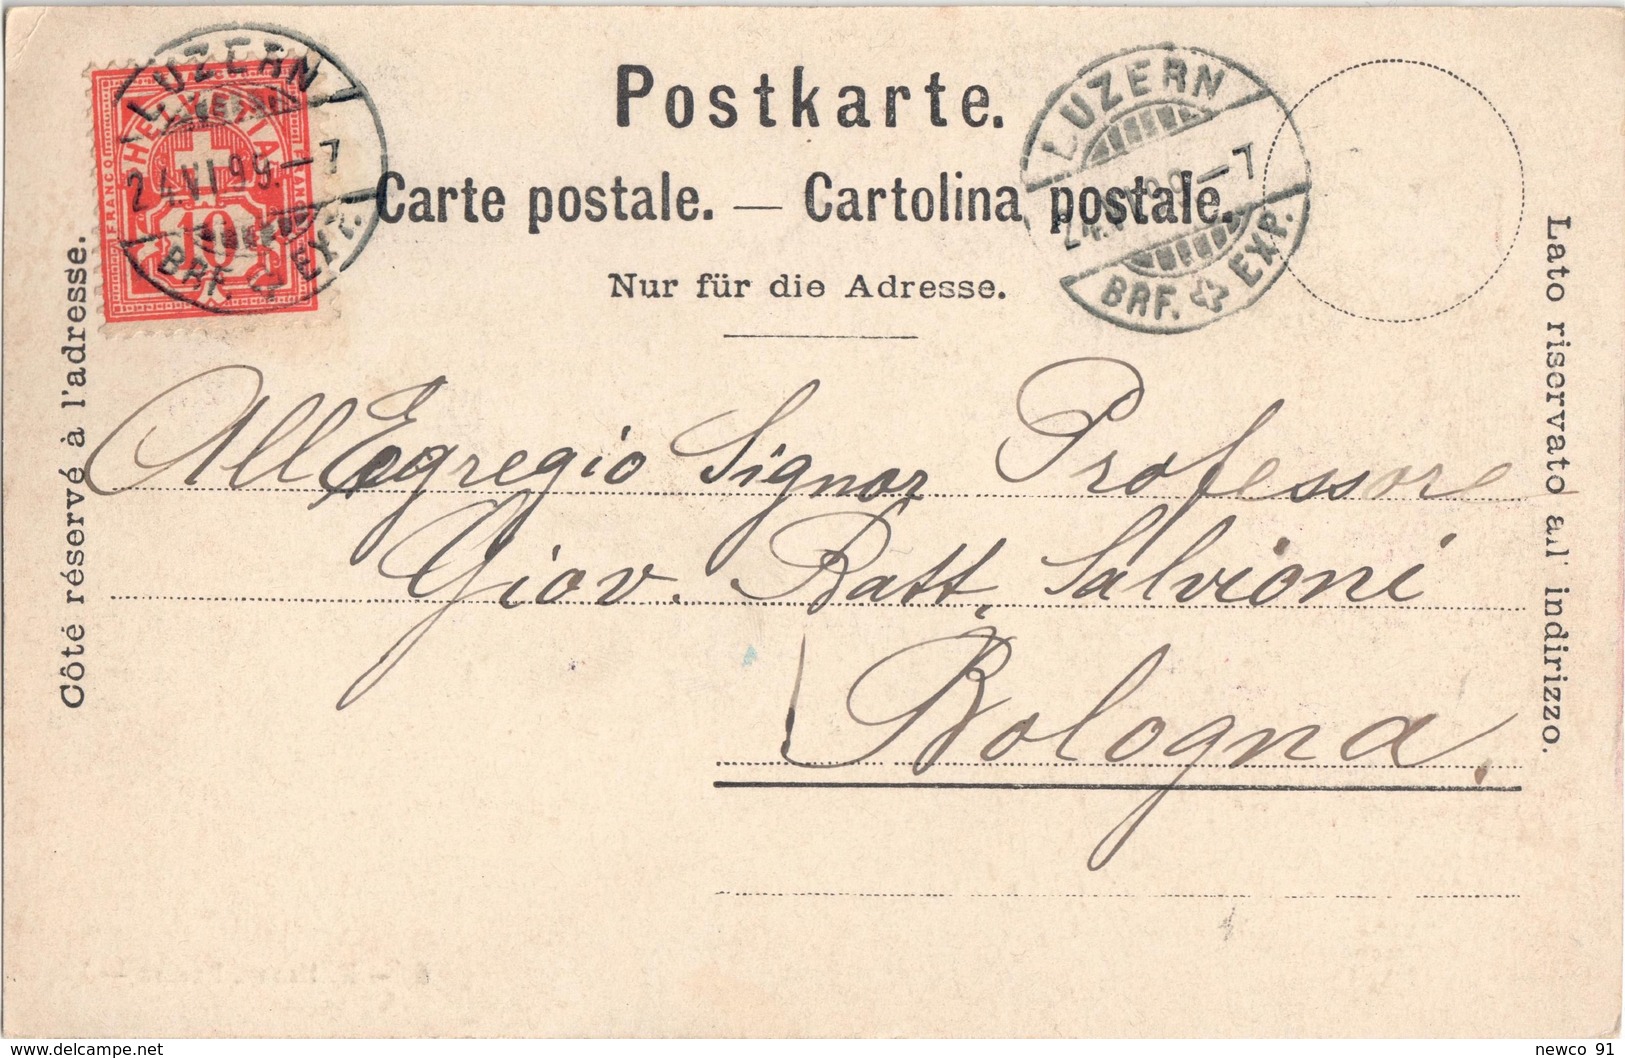 Postkarte.
Carte postale. — Cartolina postale.
Nur für die Adresse.
Côté réservé à l'adresse.
Lato riservato all' indirizzo.
FRANCO
HELVETIA
FRANCO
10
LUZERN
24.VI.99.–7
BRF. EXP.
LUZERN
24.VI.99.–7
BRF. EXP.
All'Egregio Signor Professore
Giov. Batt. Salvioni
Bologna.
newco 91